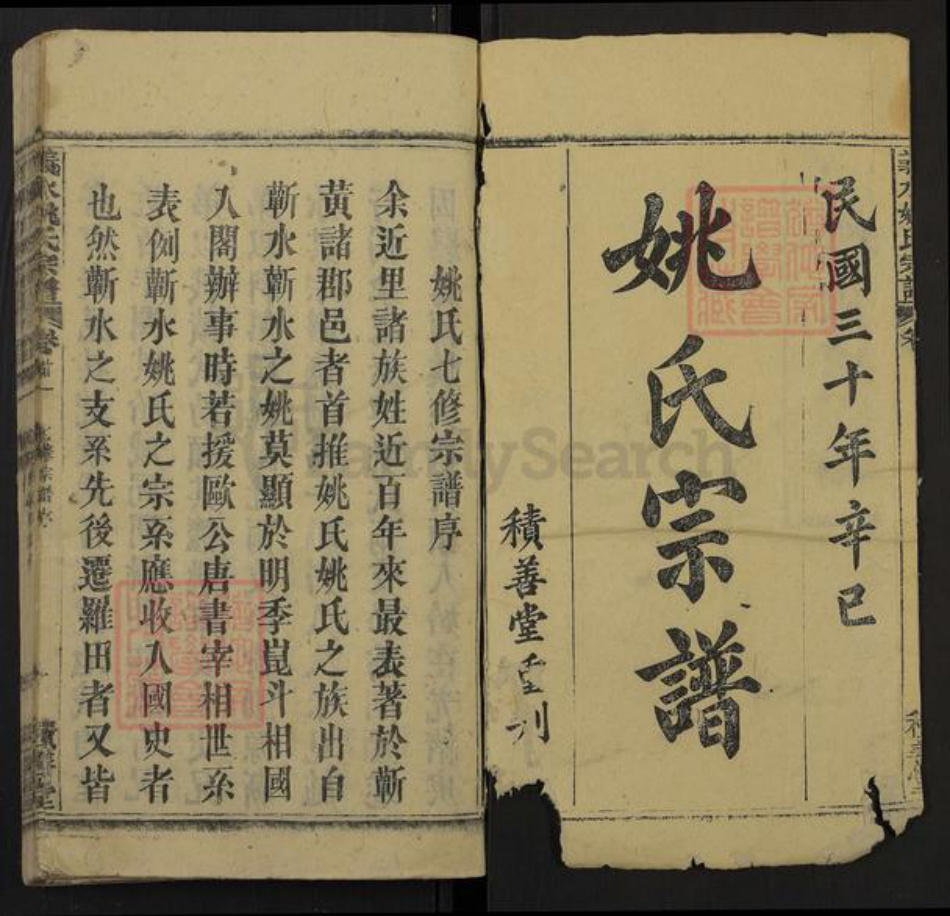 民國三十年辛巳
姚氏宗譜
積善堂 刋
姚氏七修宗譜序
余近里諸族姓近百年來最表著於蘄
黃諸郡邑者首推姚氏姚氏之族出自
蘄水蘄水之姚莫顯於明季崑斗相國
入閣辦事時若援歐公唐書宰相世系
表例蘄水姚氏之宗系應收入國史者
也然蘄水之支系先後遷羅田者又皆
水姚氏宗譜 卷
FamilySearch